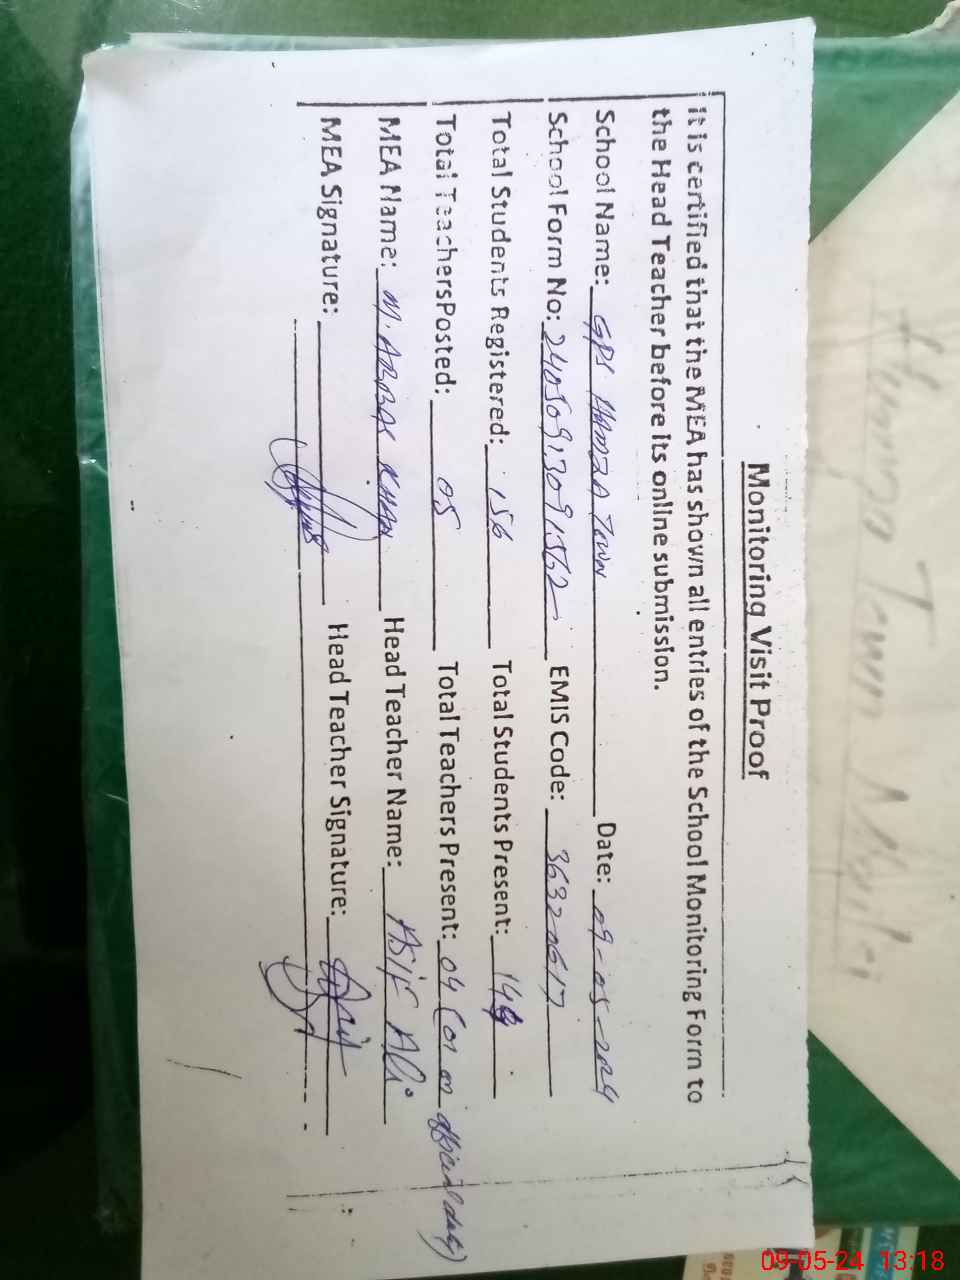 Monitoring Visit Proof
It is certified that the MEA has shown all entries of the School Monitoring Form to
the Head Teacher before its online submission.
School Name: GPS HAMZA TOWN Date: 09-05-2024
School Form No: EMIS Code: 36320617
Total Students Registered: 156 Total Students Present:
Total TeachersPosted: 05 Total Teachers Present: 04 (01 on official duty)
MEA Name: M. ABBAS KHAN Head Teacher Name: ASIF Ali
MEA Signature: Head Teacher Signature:
Hamza Town
09-05-24 13:18